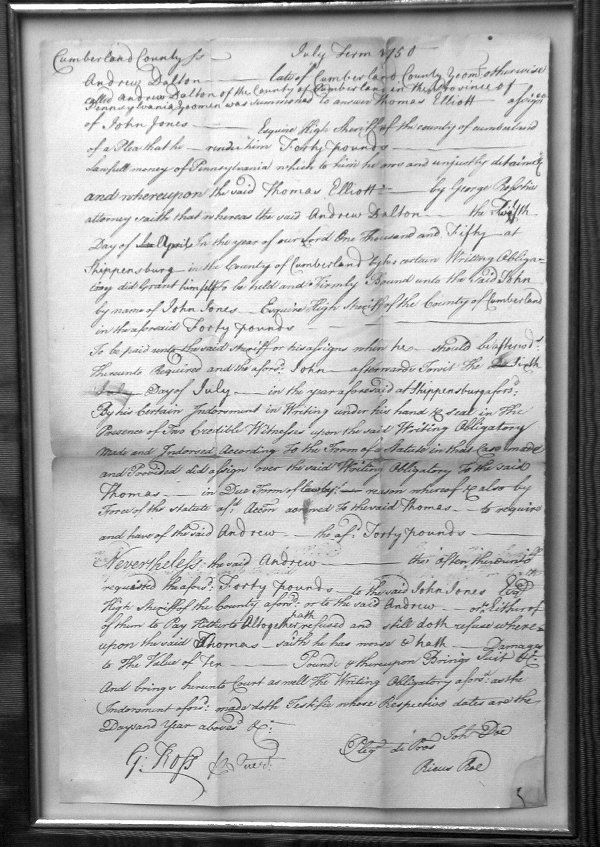 Cumberland County ss July Term 1750
Andrew Dalton late of Cumberland County Yeom otherwise
called Andrew Dalton of the County of Cumberland in the Province of
Pennsylvania Yeomen was summoned to answer Thomas Elliott assignee
of John Jones Esquire High Sheriff of the county of cumberland
of a Plea that he render him Forty pounds
lawfull money of Pennsylvania which to him he ows and unjustly detaineth
and whereupon the said Thomas Elliott by George Ross his
attorney saith that whereas the said Andrew Dalton the Twelfth
Day of April In the year of our Lord One Thousand and Fifty at
Shippensburg in the County of Cumberland by his certain Writing Obliga-
tory did Grant himself to be held and Firmly Bound unto the said John
by name of John Jones Esquire High Sheriff of the County of Cumberland
in the aforesaid Forty pounds
To be paid unto the said Sheriff or his assigns when he should be afterwds
thereunto Required and the aforsd John afterwards Towit the Tenth
July Day of July in the year aforesaid at Shippensburg aforsd
By his Certain Indorsment in Writing under his hand & seal in The
Presence of Two Credible Witnesses upon the said Writing Obligatory
made and Indorsed According To the Form of a Statute in that Case made
and Provided did assign over the said Writing Obligatory To the said
Thomas in Due Form of Law by reason whereof & also by
Force of the statute afd Action accrued to the said Thomas to require
and have of the said Andrew the afd Forty pounds
Nevertheless the said Andrew tho' often thereunto
requested the aforsd Forty pounds to the said John Jones Esqr
High Sheriff of the County aforsd or to the said Andrew or Either of
of them to Pay Hitherto Altogether hath refused and still doth refuse where=
upon the said Thomas saith he has worse & hath Damage
to The Value of Ten Pounds & thereupon Brings Suit &c
And brings here unto Court as well the Writing Obligatory aforsd as the
Indorsment aforsd made doth Testifie whose Respective dates are the
Day and Year abovesd &c
G: Ross p Quer Pleg de Pros John Doe
Ricus Roe